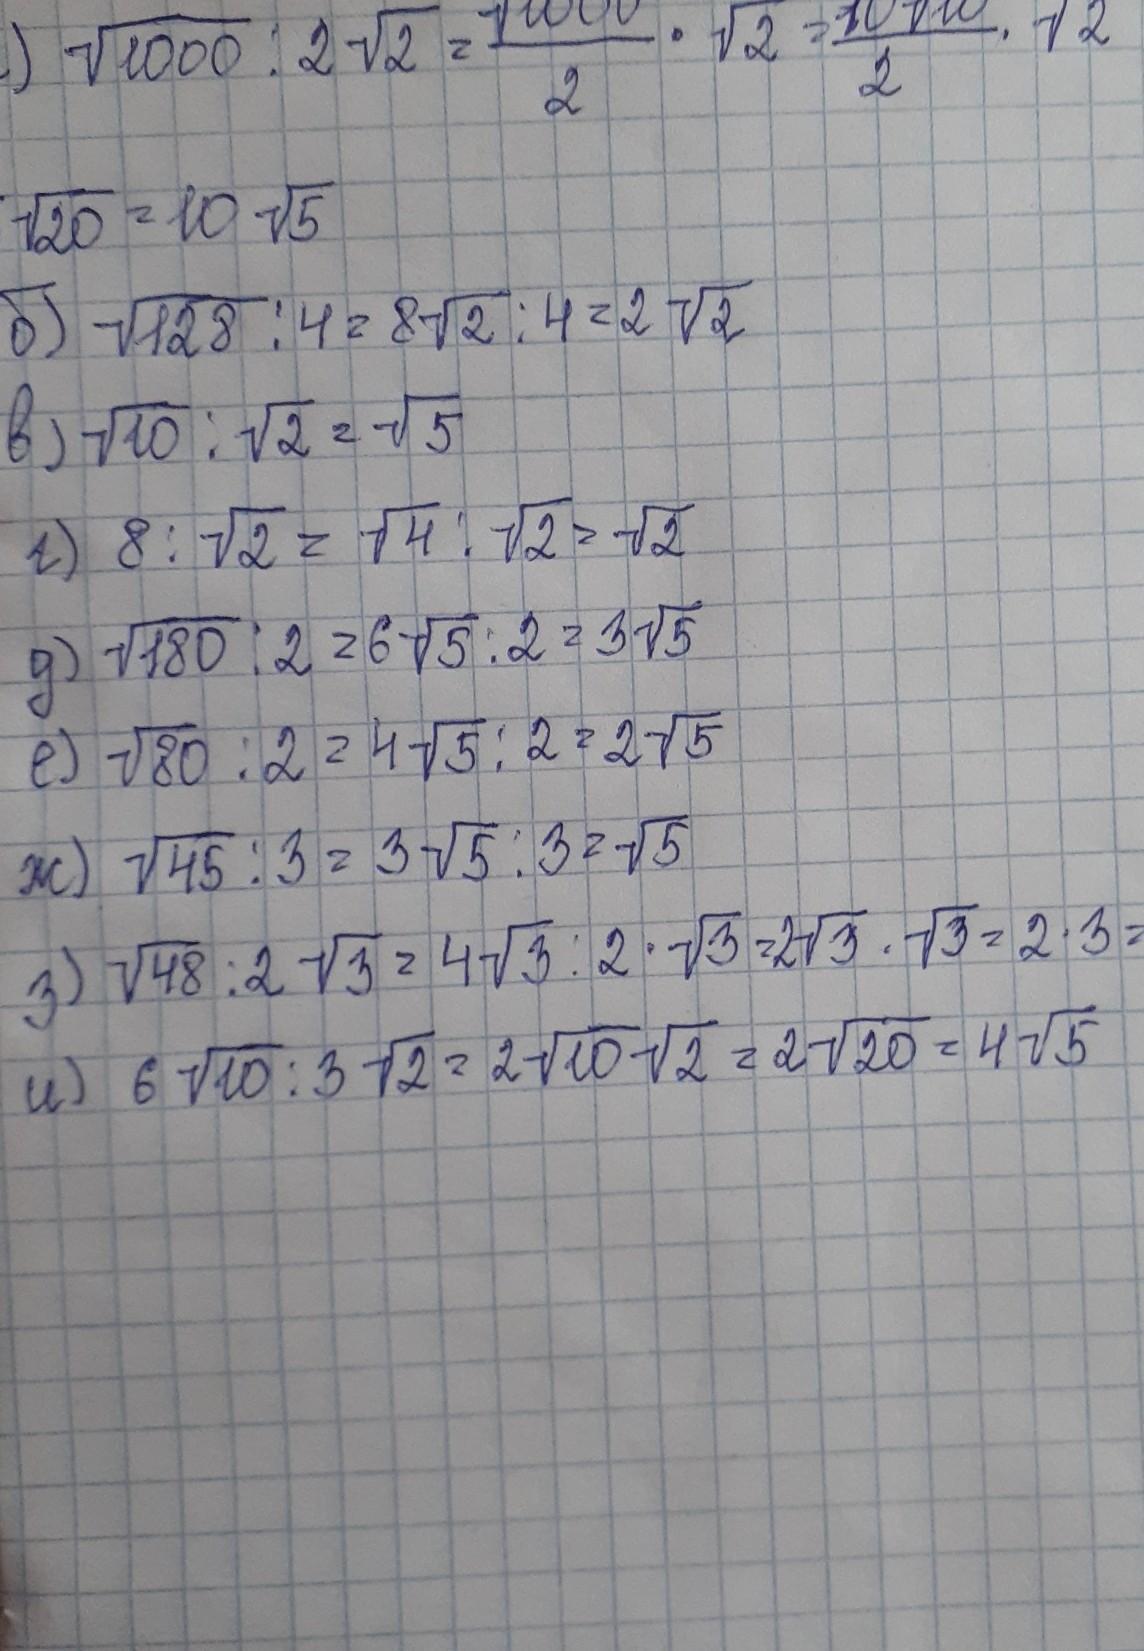 ) √1000 : 2√2 = √1000/2 · √2 = 10√10/2 · √2
√20 = 10√5
б) √128 : 4 = 8√2 : 4 = 2√2
в) √10 : √2 = √5
г) 8 : √2 = √4 : √2 = √2
д) √180 : 2 = 6√5 : 2 = 3√5
е) √80 : 2 = 4√5 : 2 = 2√5
ж) √45 : 3 = 3√5 : 3 = √5
з) √48 : 2√3 = 4√3 : 2 · √3 = 2√3 · √3 = 2 · 3 =
и) 6√10 : 3√2 = 2√10√2 = 2√20 = 4√5